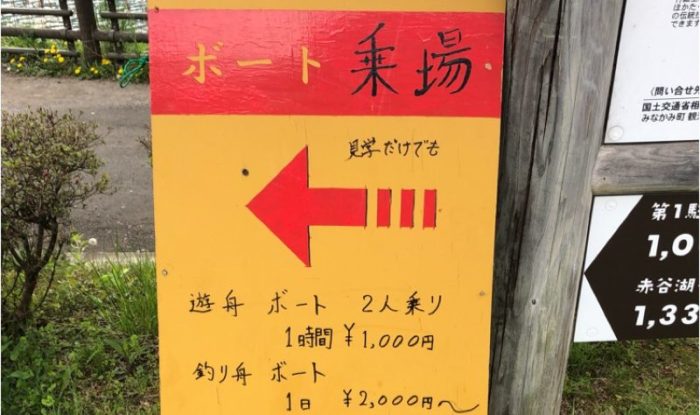 ボート 乗場
見学だけでも
遊舟 ボート 2人乗り
1時間 ¥1,000円
釣り舟 ボート
1日 ¥2,000円〜
の伝統
できます
〈問い合せ
国土交通省相
みなかみ町 観
第1駐
1,0
赤谷湖
1,33